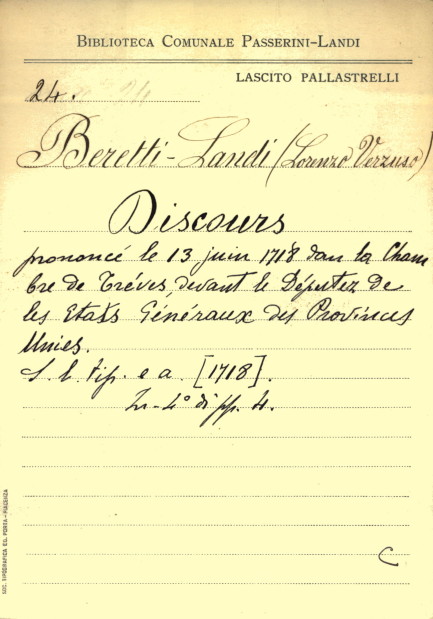 BIBLIOTECA COMUNALE PASSERINI-LANDI
LASCITO PALLASTRELLI
24. 24
Beretti-Landi (Lorenzo Verzuso)
Discours
prononcé le 13 juin 1718 dans la Cham
bre de Tréves, devant le Députez de
les Etats Généraux des Provinces
Unies.
S. l. tip. e a. [1718].
In-4° di pp. 4.
C
SOC. TIPOGRAFICA ED. PORTA-PIACENZA